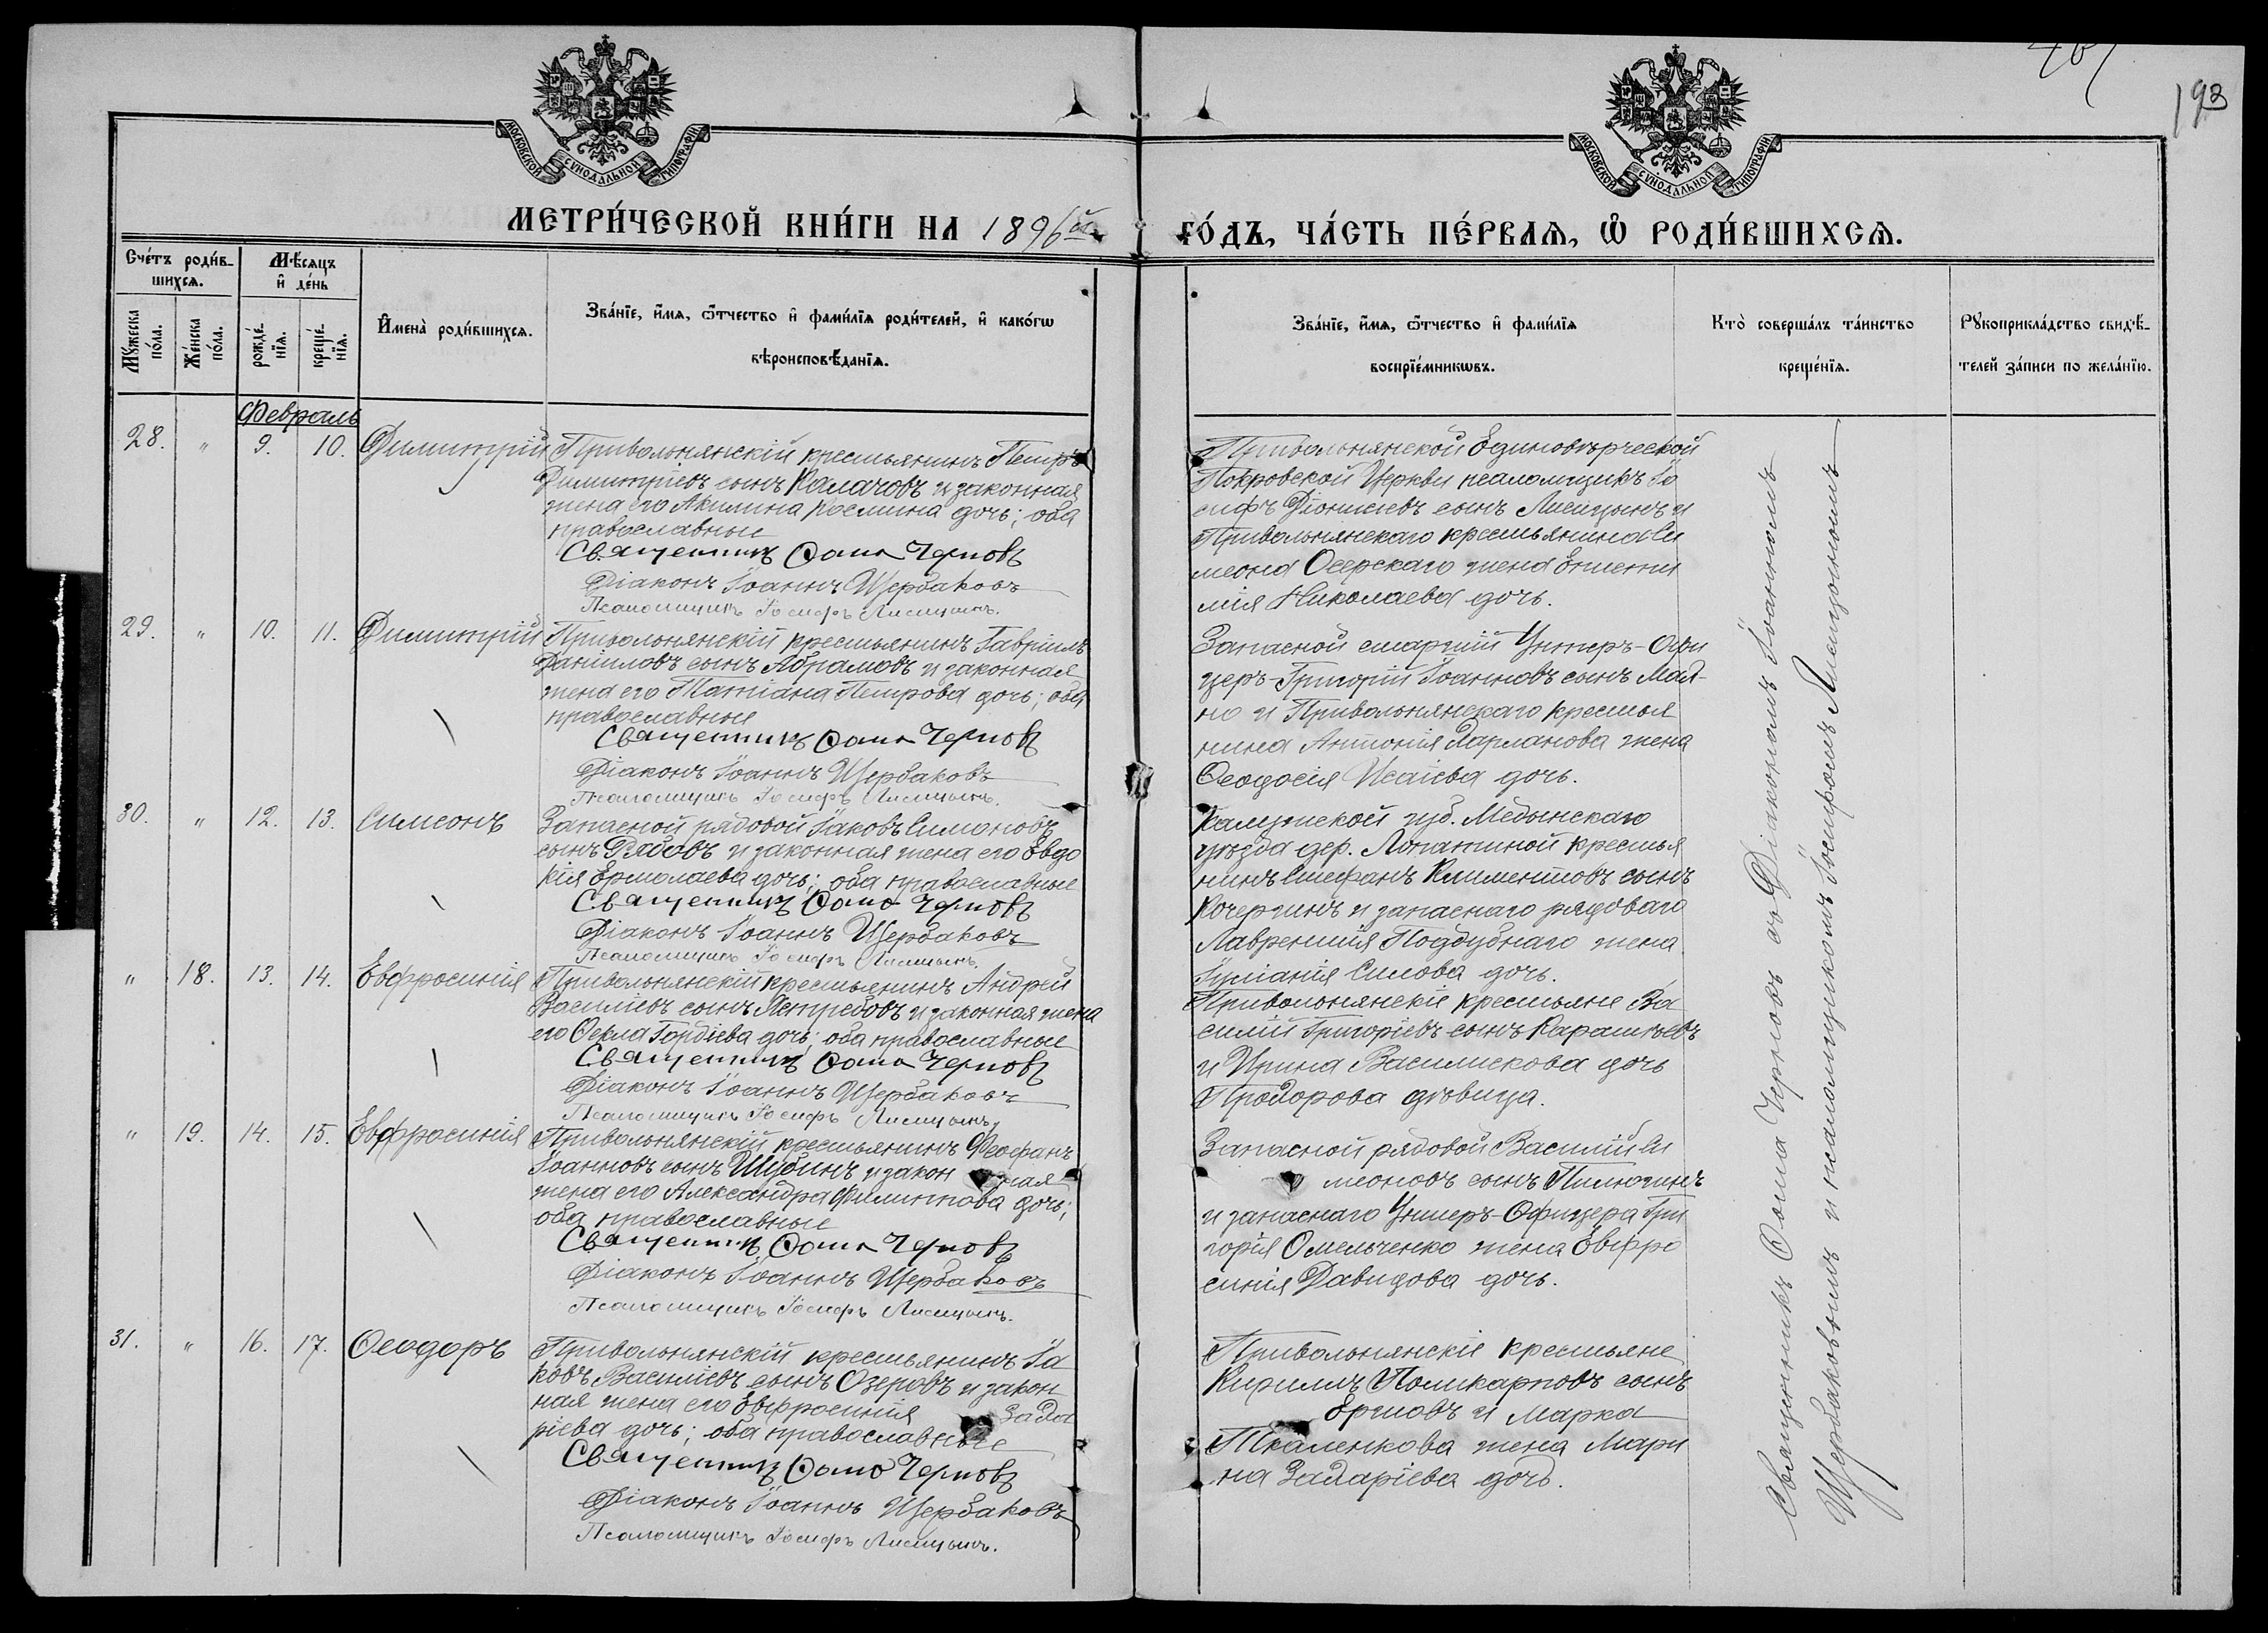 193
МОСКОВСКОЙ СѴНОДАЛЬНОЙ ТИПОГРАФІИ
МОСКОВСКОЙ СѴНОДАЛЬНОЙ ТИПОГРАФІИ
МЕТРИ́ЧЕСКОЙ КНИ́ГИ НА 1896й ГО́ДЪ, ЧА́СТЬ ПЕ́РВАѦ, Ѡ҆ РОДИ́ВШИХСѦ.
Сче́тъ роди́в-
шихсѧ.
Мꙋ́жеска по́ла.
Же́нска по́ла.
Мѣ́сѧцъ
и҆ де́нь
рожде́-
нїѧ.
креще́-
нїѧ.
И҆мена̀ роди́вшихсѧ.
Зва́нїе, и҆́мѧ, ѻ҆́тчество и҆ фами́лїѧ роди́телей, и҆ како́гѡ
вѣроисповѣ́данїѧ.
Зва́нїе, и҆́мѧ, ѻ҆́тчество и҆ фами́лїѧ
воспрїе́мникѡвъ.
Кто̀ соверша́лъ та́инство
креще́нїѧ.
Рꙋкоприкла́дство свидѣ́-
телей за́писи по жела́нїю.
Февраль
28. " 9. 10. Димитрій
Привольнянскій крестьянинъ Петръ
Димитріевъ сынъ Калачовъ и законная
жена его Акилина Космина дочь; оба
православные
Священникъ Ѳома Черновъ
Діаконъ Іоаннъ Щербаковъ
Псаломщикъ Іосифъ Лисицынъ.
Привольнянской Единовѣрческой
Покровской Церкви псаломщикъ Іо
сифъ Діонисіевъ сынъ Лисицынъ и
Привольнянскаго крестьянина Си
меона Осерскаго жена Епистим
мія Николаева дочь.
29. " 10. 11. Димитрій
Привольнянскій крестьянинъ Гавріилъ
Даніиловъ сынъ Абрамовъ и законная
жена его Татіана Петрова дочь; оба
православные
Священникъ Ѳома Черновъ
Діаконъ Іоаннъ Щербаковъ
Псаломщикъ Іосифъ Лисицынъ.
Запасной старшій Унтеръ-Офи
церъ Григорій Іоанновъ сынъ
и Привольнянскаго крестья
нина Антонія Харланова жена
Ѳеодосія Исаіева дочь.
30. " 12. 13. Симеонъ
Запасной рядовой Іаковъ Симоновъ
сынъ Рябовъ и законная жена его Евдо
кія Ермолаева дочь; оба православные
Священникъ Ѳома Черновъ
Діаконъ Іоаннъ Щербаковъ
Псаломщикъ Іосифъ Лисицынъ.
Калужской губ. Медынскаго
уѣзда дер. Лопатиной крестья
нинъ Стефанъ Климентовъ сынъ
Кочергинъ и запаснаго рядоваго
Лаврентія Поддубнаго жена
Іуліанія Силова дочь.
" 18. 13. 14. Евфросинія
Привольнянскій крестьянинъ Андрей
Василіевъ сынъ Ястребовъ и законная жена
его Ѳекла Гордіева дочь; оба православные
Священникъ Ѳома Черновъ
Діаконъ Іоаннъ Щербаковъ
Псаломщикъ Іосифъ Лисицынъ.
Привольнянскіе крестьяне Ва
силій Григоріевъ сынъ Карашкѣевъ
и Ирина Василискова дочь
Прохорова дѣвица.
" 19. 14. 15. Евфросинія
Привольнянскій крестьянинъ Ѳеофанъ
Іоанновъ сынъ Шубинъ и закон ная
жена его Александра Филиппова дочь;
оба православные
Священникъ Ѳома Черновъ
Діаконъ Іоаннъ Щербаковъ
Псаломщикъ Іосифъ Лисицынъ.
Запасной рядовой Василій Си
меоновъ сынъ Пилюгинъ
и запаснаго Унтеръ-Офицера Гри
горія Омельченко жена Евфро
синія Давидова дочь.
31. " 16. 17. Ѳеодоръ
Привольнянскій крестьянинъ Іа
ковъ Василіевъ сынъ Озеровъ и закон
ная жена его Евфросинія Заха
ріева дочь; оба православные
Священникъ Ѳома Черновъ
Діаконъ Іоаннъ Щербаковъ
Псаломщикъ Іосифъ Лисицынъ.
Привольнянскіе крестьяне
Кириллъ Поликарповъ сынъ
Ершовъ и Марка
Ткаленкова жена Мари
на Захаріева дочь.
Священникъ Ѳома Черновъ съ Діакономъ Іоанномъ
Щербаковымъ и псаломщикомъ Іосифомъ Лисицынымъ